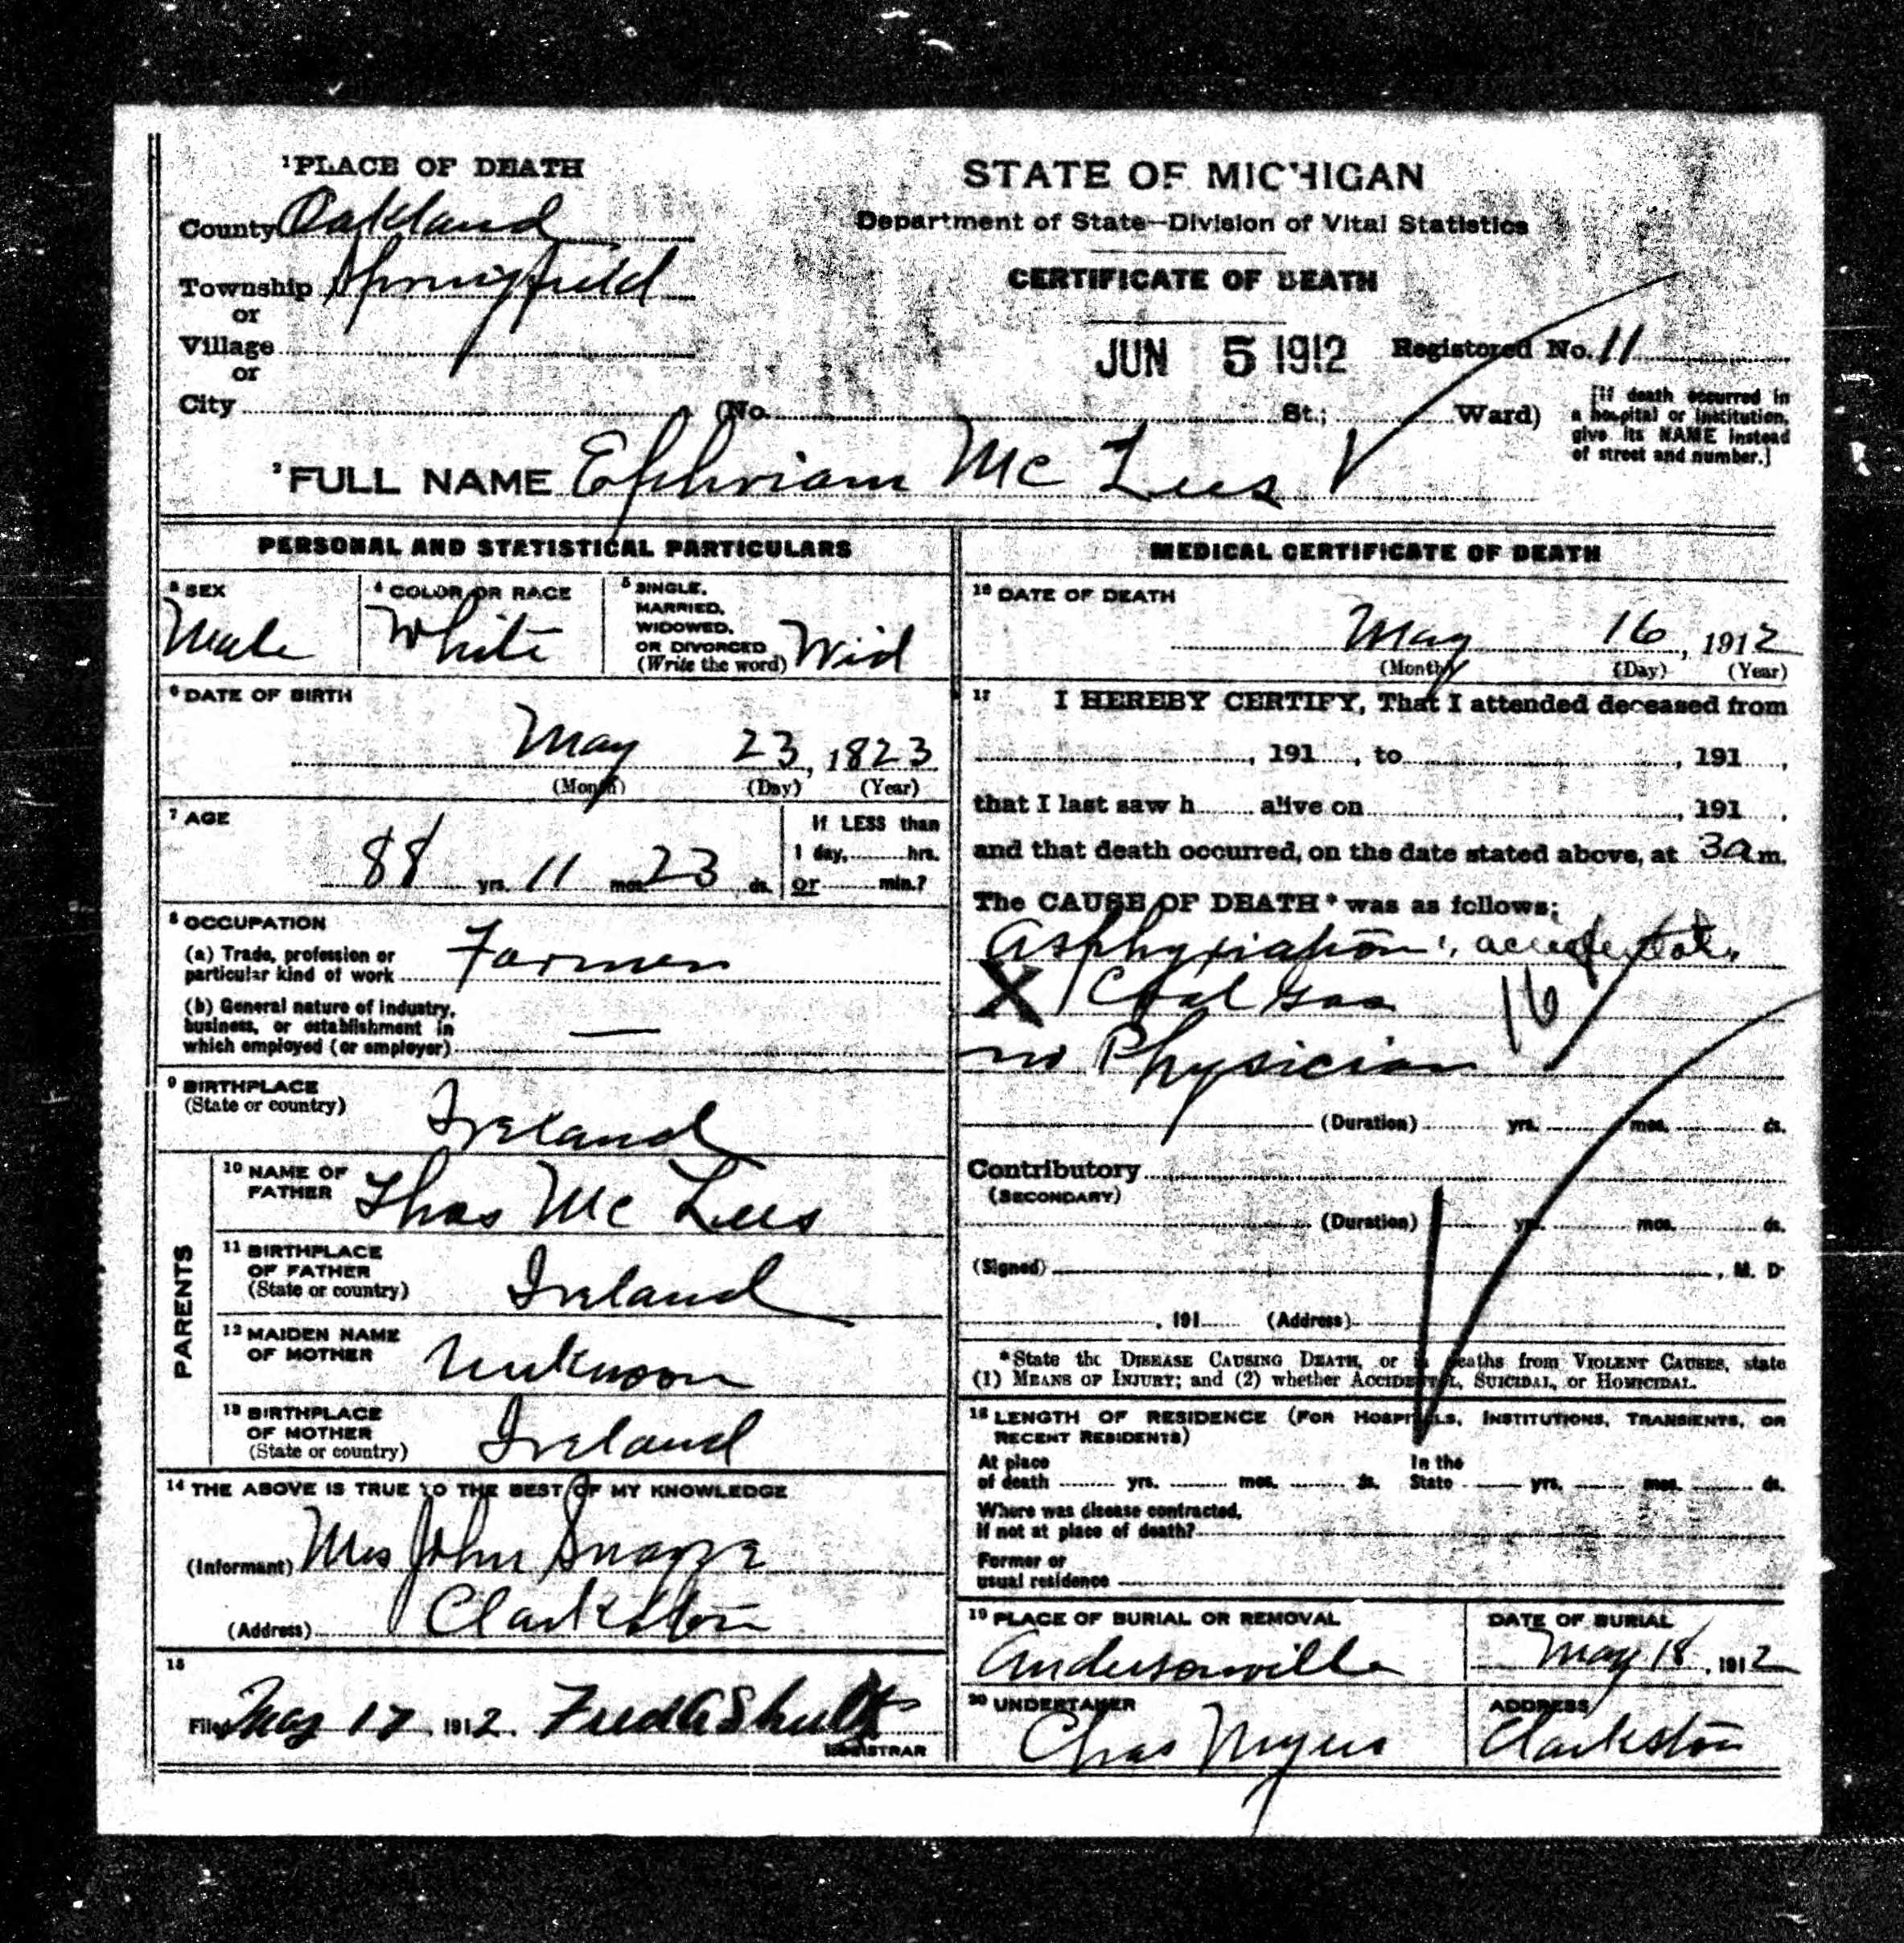 ¹PLACE OF DEATH
County Oakland
Township Springfield
or
Village
or
City (No. St.; Ward)
STATE OF MICHIGAN
Department of State—Division of Vital Statistics
CERTIFICATE OF DEATH
JUN 5 1912 Registered No. 11
[If death occurred in
a hospital or institution,
give its NAME instead
of street and number.]
²FULL NAME Ephriam Mc Lees
PERSONAL AND STATISTICAL PARTICULARS
³ SEX
Male
⁴ COLOR OR RACE
White
⁵ SINGLE,
MARRIED,
WIDOWED,
OR DIVORCED
(Write the word) Wid
⁶ DATE OF BIRTH
May 23, 1823
(Month) (Day) (Year)
⁷ AGE
88 yrs. 11 mos. 23 ds.
If LESS than
1 day, hrs.
or min.?
⁸ OCCUPATION
(a) Trade, profession or
particular kind of work Farmer
(b) General nature of industry,
business, or establishment in
which employed (or employer) —
⁹ BIRTHPLACE
(State or country)
Ireland
PARENTS
¹⁰ NAME OF
FATHER Thos Mc Lees
¹¹ BIRTHPLACE
OF FATHER
(State or country) Ireland
¹² MAIDEN NAME
OF MOTHER Unknoon
¹³ BIRTHPLACE
OF MOTHER
(State or country) Ireland
¹⁴ THE ABOVE IS TRUE TO THE BEST OF MY KNOWLEDGE
(Informant) Mrs John
(Address) Clarkston
¹⁵
Filed May 17, 1912. Fred A Shultz
REGISTRAR
MEDICAL CERTIFICATE OF DEATH
¹⁶ DATE OF DEATH
May 16, 1912
(Month) (Day) (Year)
¹⁷ I HEREBY CERTIFY, That I attended deceased from
, 191 , to , 191 ,
that I last saw h alive on , 191 ,
and that death occurred, on the date stated above, at 3a m.
The CAUSE OF DEATH* was as follows;
Asphyxiation, accidental.
X Coal Gas 16
no Physician
(Duration) yrs. mos. ds.
Contributory
(SECONDARY)
(Duration) yrs. mos. ds.
(Signed) , M. D
, 191 (Address)
*State the DISEASE CAUSING DEATH, or in deaths from VIOLENT CAUSES, state
(1) MEANS OF INJURY; and (2) whether ACCIDENTAL, SUICIDAL, or HOMICIDAL.
¹⁸ LENGTH OF RESIDENCE (FOR HOSPITALS, INSTITUTIONS, TRANSIENTS, OR
RECENT RESIDENTS)
At place
of death yrs. mos. ds.
In the
State yrs. mos. ds.
Where was disease contracted,
if not at place of death?
Former or
usual residence
¹⁹ PLACE OF BURIAL OR REMOVAL
Andersonville
DATE OF BURIAL
May 18, 1912
²⁰ UNDERTAKER
Chas Myers
ADDRESS
Clarkston